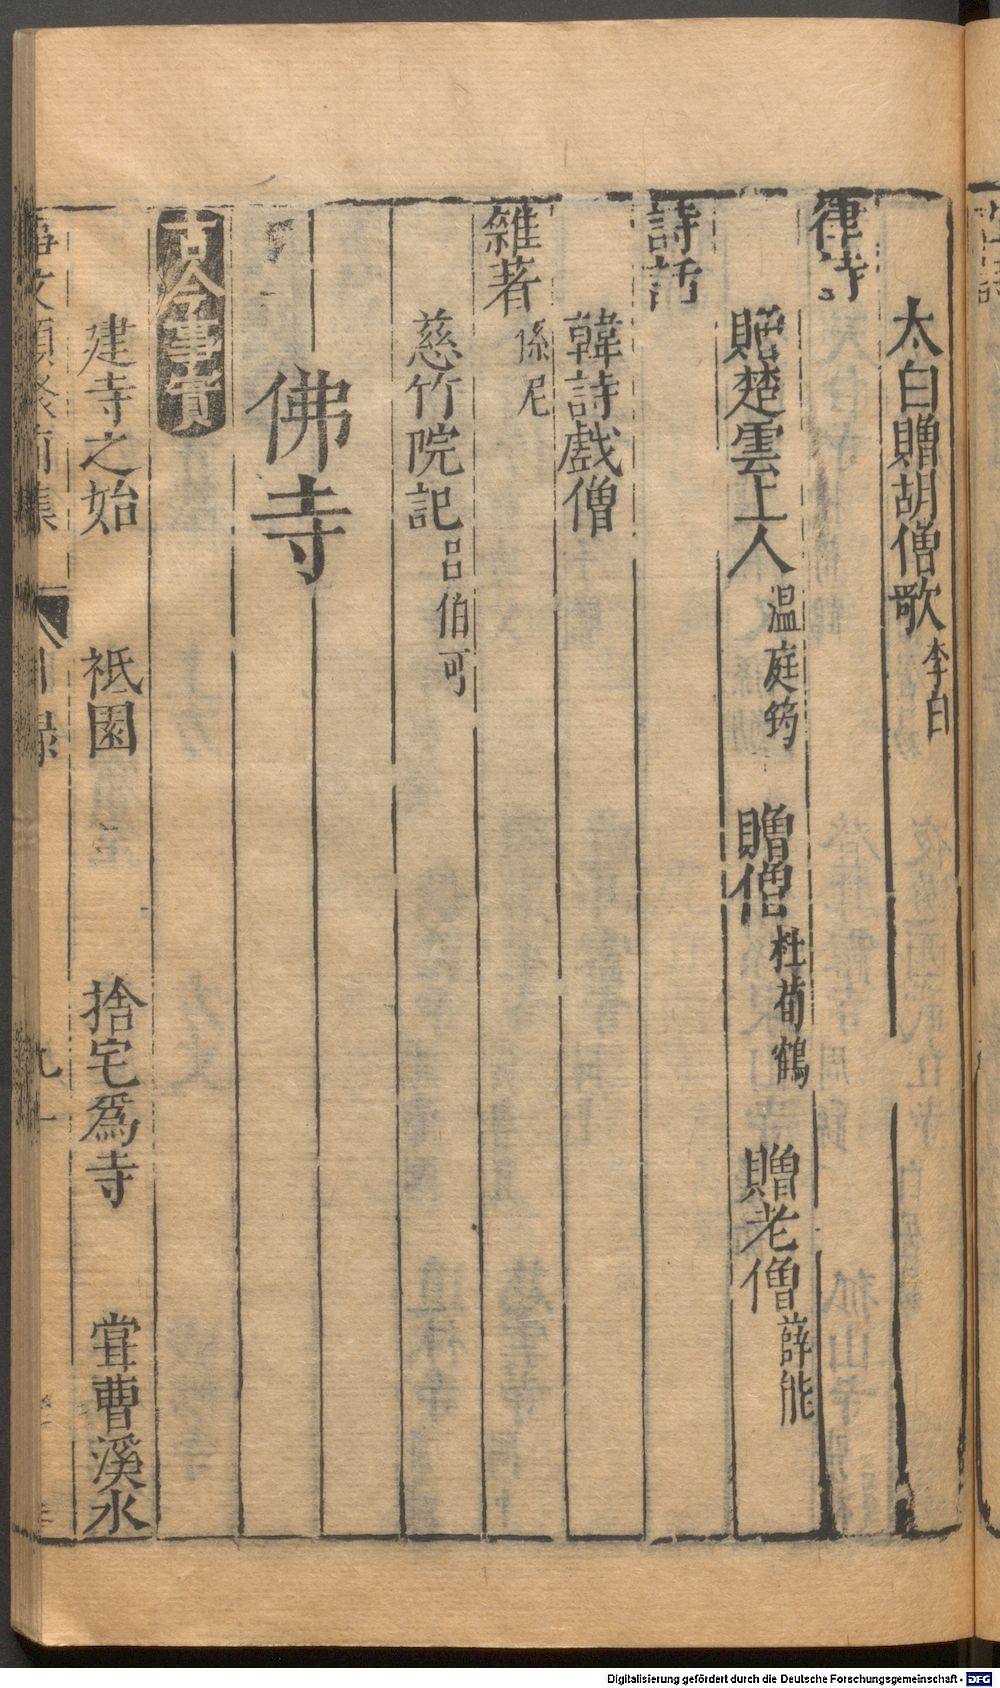 太白贈胡僧歌 李白
律詩
贈楚雲上人 温庭筠 贈僧 杜荀鶴 贈老僧 薛能
詩話
韓詩戲僧
雜著 係尼
慈竹院記 吕伯可
佛寺
古今事實
建寺之始 祗園 捨宅爲寺 甞曹溪水
事文類聚前集 目録 九一
Digitalisierung gefördert durch die Deutsche Forschungsgemeinschaft - DFG